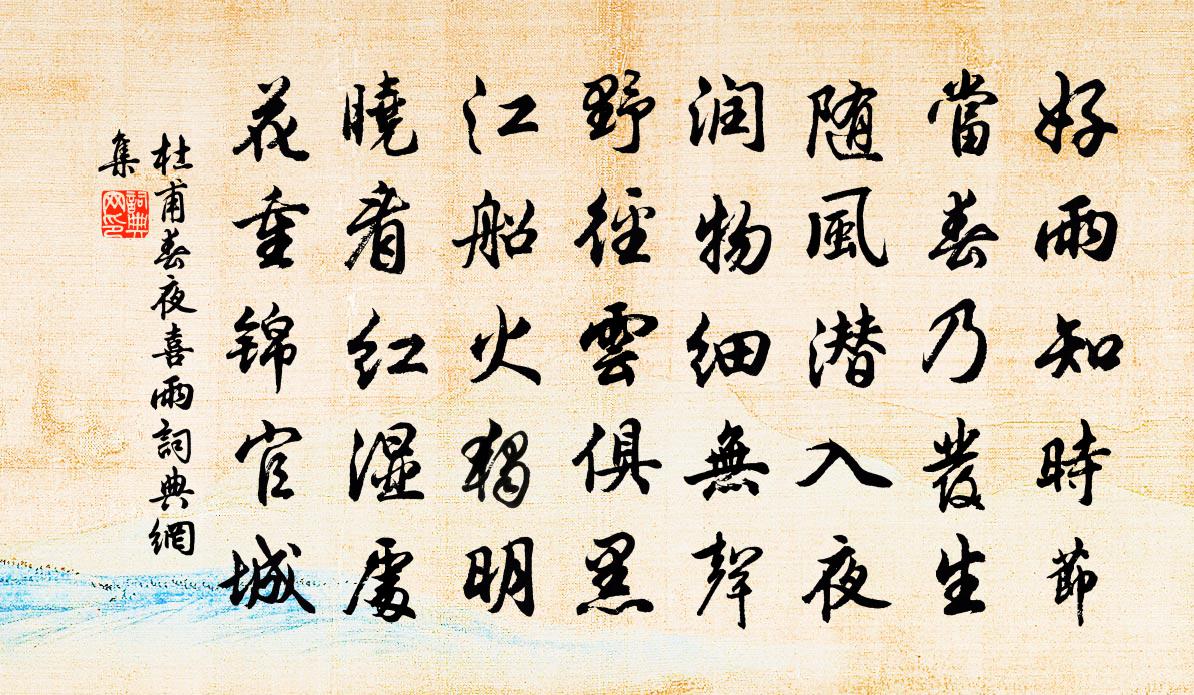 好雨知時節
當春乃發生
随風潜入夜
润物細無聲
野徑雲俱黑
江船火獨明
曉看紅濕處
花重錦官城
杜甫春夜喜雨詞典網
集
詞典
网印